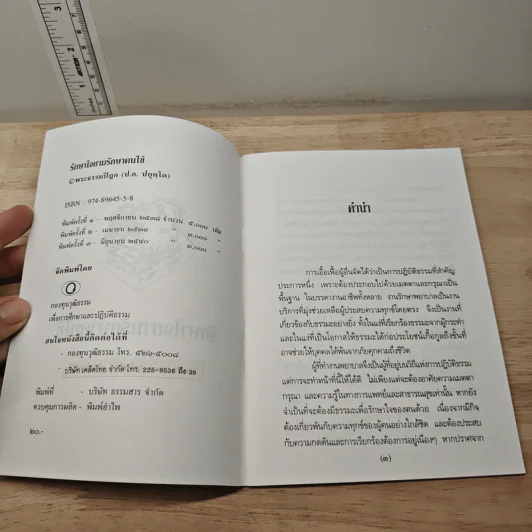 รักษาใจยามรักษาคนไข้
©พระธรรมปิฎก (ป.อ. ปยุตฺโต)
ISBN : 974-89645-5-8
พิมพ์ครั้งที่ ๑ - พฤศจิกายน ๒๕๓๘ จำนวน ๕,๐๐๐ เล่ม
พิมพ์ครั้งที่ ๒ - เมษายน ๒๕๓๙ " ๓,๐๐๐ "
พิมพ์ครั้งที่ ๓ - มิถุนายน ๒๕๔๐ " ๓,๐๐๐ "
จัดพิมพ์โดย
กองทุนวุฒิธรรม
เพื่อการศึกษาและปฏิบัติธรรม
สนใจหนังสือนี้ติดต่อได้ที่
- กองทุนวุฒิธรรม โทร. ๕๒๖-๕๐๐๘
บริษัท เคล็ดไทย จำกัด โทร. 225-9536 ถึง 39
พิมพ์ที่ - บริษัท ธรรมสาร จำกัด
ควบคุมการผลิต - พิมพ์อำไพ
๒๐.-
คำนำ
การเอื้อเฟื้อผู้อื่นจัดได้ว่าเป็นการปฏิบัติธรรมที่สำคัญ
ประการหนึ่ง เพราะต้องประกอบไปด้วยเมตตาและกรุณาเป็น
พื้นฐาน ในบรรดางานอาชีพทั้งหลาย งานรักษาพยาบาลเป็นงาน
บริการที่มุ่งช่วยเหลือผู้ประสบความทุกข์โดยตรง จึงเป็นงานที่
เกี่ยวข้องกับธรรมะอย่างยิ่ง ทั้งในแง่ที่เรียกร้องธรรมะจากผู้กระทำ
และในแง่ที่เป็นโอกาสให้ธรรมะก่อประโยชน์เกื้อกูลถึงขั้นที่
อาจช่วยให้บุคคลได้พ้นจากภัยคุกคามถึงชีวิต
ผู้ที่ทำงานพยาบาลจึงเป็นผู้ที่อยู่บนวิถีแห่งการปฏิบัติธรรม
แต่การจะทำหน้าที่นี้ให้ได้ดี ไม่เพียงแต่จะต้องอาศัยความเมตตา
กรุณา และความรู้ในทางการแพทย์และสาธารณสุขเท่านั้น หากยัง
จำเป็นที่จะต้องมีธรรมะเพื่อรักษาใจของตนด้วย เนื่องจากมีกิจ
ต้องเกี่ยวพันกับความทุกข์ของผู้คนอย่างใกล้ชิด และต้องประสบ
กับความกดดันและการเรียกร้องต้องการอยู่เนืองๆ หากปราศจาก
(๓)